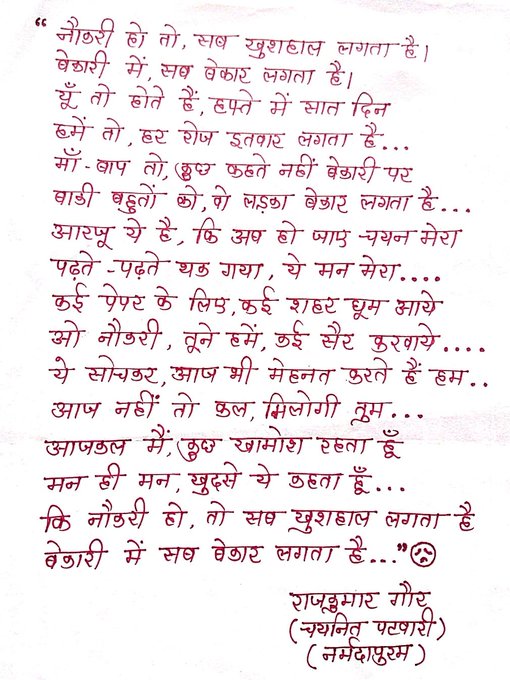 “नौकरी हो तो, सब खुशहाल लगता है।
बेकारी में, सब बेकार लगता है।
यूँ तो होते हैं, हफ्ते में सात दिन
हमें तो, हर रोज इतवार लगता है...
माँ-बाप तो, कुछ कहते नहीं बेकारी पर
बाकी बहुतों को, वो लड़का बेकार लगता है...
आरजू ये है, कि अब हो जाए चयन मेरा
पढ़ते-पढ़ते थक गया, ये मन मेरा....
कई पेपर के लिए, कई शहर घूम आये
ओ नौकरी, तूने हमें, कई सैर करवाये....
ये सोचकर, आज भी मेहनत करते हैं हम..
आज नहीं तो कल, मिलोगी तुम...
आजकल मैं, कुछ खामोश रहता हूँ
मन ही मन, खुदसे ये कहता हूँ...
कि नौकरी हो, तो सब खुशहाल लगता है
बेकारी में सब बेकार लगता है...”
राजकुमार गौर
(चयनित पटवारी)
(नर्मदापुरम)